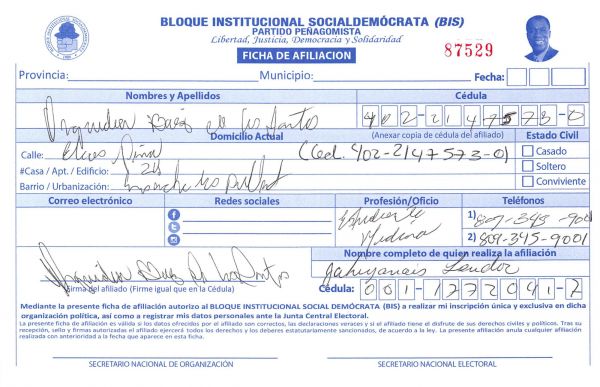 BLOQUE INSTITUCIONAL SOCIALDEMÓCRATA (BIS)
PARTIDO PEÑAGOMISTA
Libertad, Justicia, Democracia y Solidaridad
FICHA DE AFILIACION
87529
Provincia: Municipio: Fecha:
Nombres y Apellidos Cédula
Baez de los Santos 402-2147573-0
Domicilio Actual (Anexar copia de cédula del afiliado) Estado Civil
Calle: Piña (Ced. 402-2147573-0) Casado
#Casa / Apt. / Edificio: 28 Soltero
Barrio / Urbanización: Conviviente
Correo electrónico Redes sociales Profesión/Oficio Teléfonos
Estudiante 1) 809-345-9001
Medicina 2) 809-345-9001
Baez de los Santos
Nombre completo de quien realiza la afiliación
Firma del afiliado (Firme igual que en la Cédula) Cédula: 001-1772041-7
Mediante la presente ficha de afiliación autorizo al BLOQUE INSTITUCIONAL SOCIAL DEMÓCRATA (BIS) a realizar mi inscripción única y exclusiva en dicha
organización política, así como a registrar mis datos personales ante la Junta Central Electoral.
La presente ficha de afiliación es válida si los datos ofrecidos por el afiliado son correctos, las declaraciones veraces y si el afiliado tiene el disfrute de sus derechos civiles y políticos. Tras su
recepción, sello y firmas autorizadas el afiliado ejercerá todos los derechos y los deberes estatutariamente sancionados, de acuerdo a la ley. La presente afiliación anula cualquier afiliación
realizada con anterioridad a la fecha que aparece en esta ficha.
SECRETARIO NACIONAL DE ORGANIZACIÓN SECRETARIO NACIONAL ELECTORAL